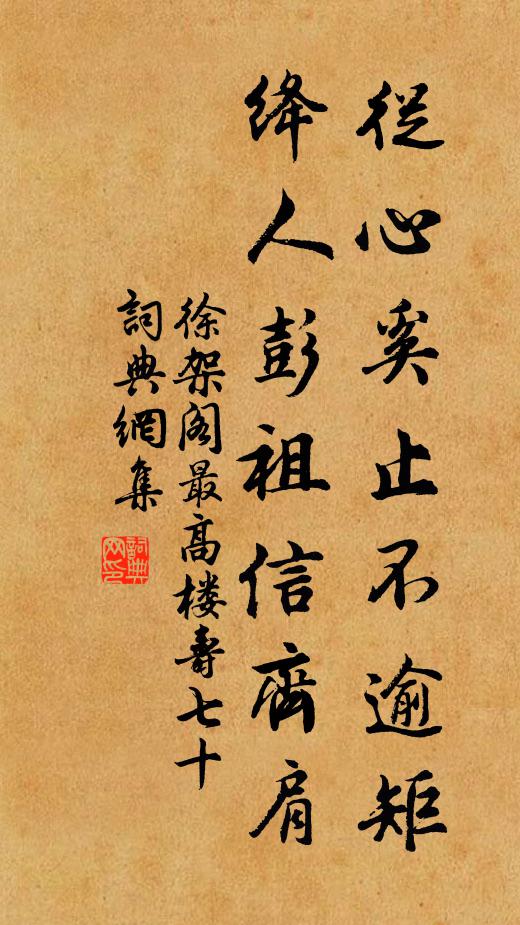 從心奚止不逾矩
絳人彭祖信齊肩
徐架阁最高楼壽七十
詞典網集
詞典网印